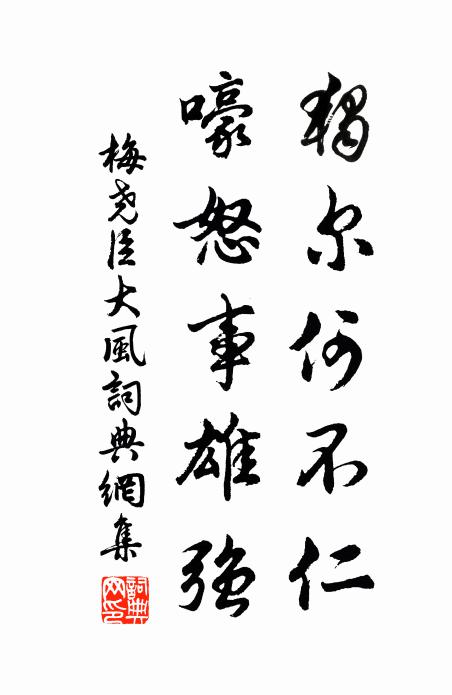 獨尔何不仁
嚎怒事雄强
梅堯臣大風詞典網集
詞典網印